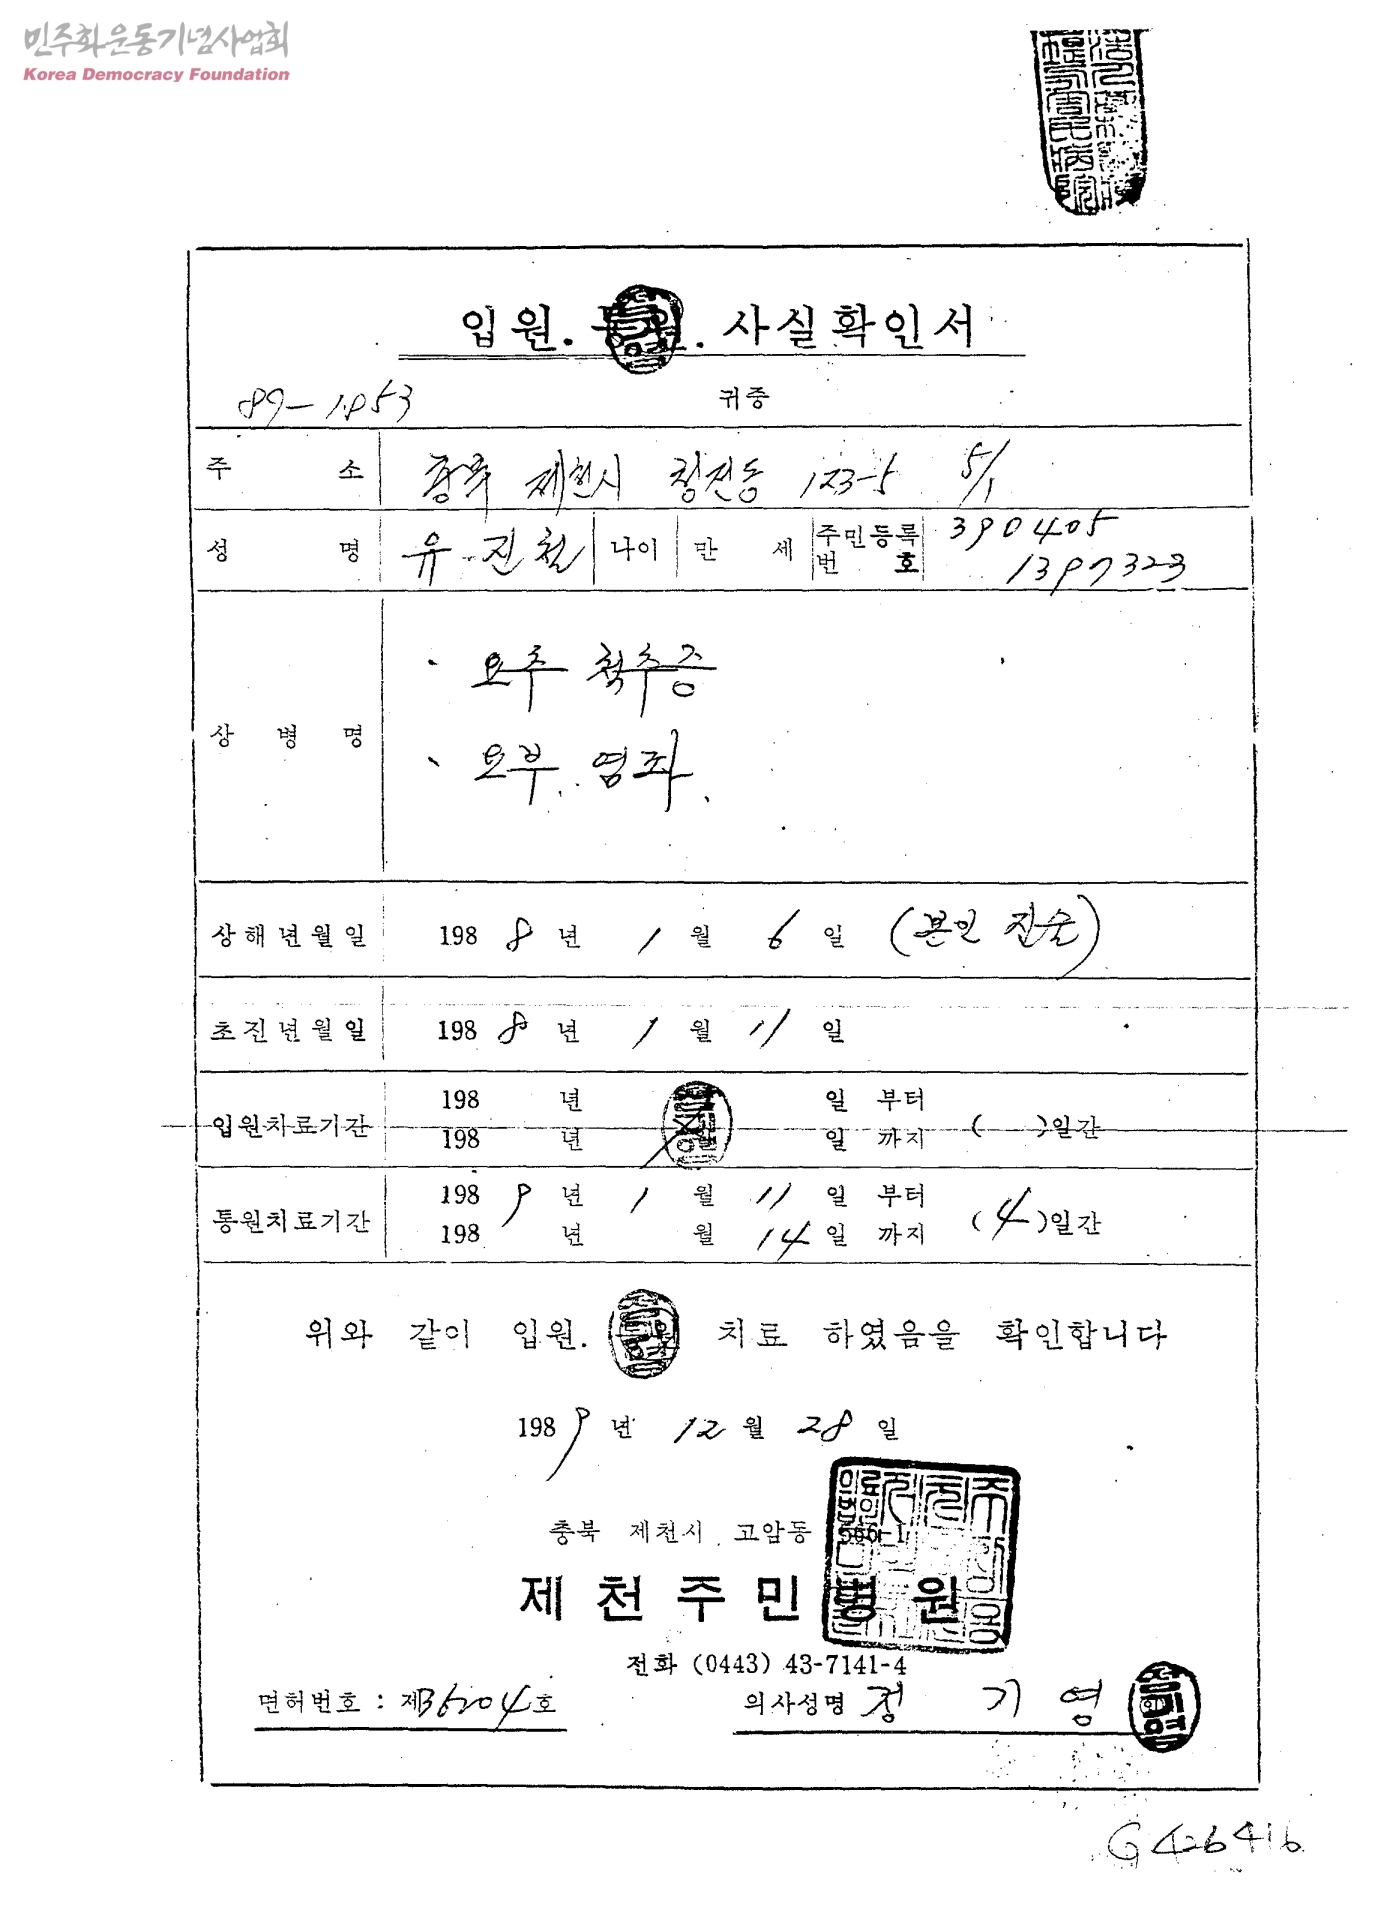 민주화운동기념사업회
Korea Democracy Foundation
입원. 통원. 사실확인서
귀중
주 소 충북 제천시 청전동 123-5 5/1
성 명 유진철 나이 만 세 주민등록번호 390405
1397323
상 병 명 요추 척추증
요부 염좌
상해년월일 198 8 년 1 월 6 일 (본인 진술)
초진년월일 198 8 년 1 월 11 일
입원치료기간 198 년 일 부터
198 년 월 일 까지 ( )일간
통원치료기간 198 9 년 1 월 11 일 부터
198 년 월 14 일 까지 (4)일간
위와 같이 입원. 통원 치료 하였음을 확인합니다
198 9 년 12 월 28 일
충북 제천시 고암동 566-1
제천주민병원
전화 (0443) 43-7141-4
면허번호 : 제36204호 의사성명 정 기 영
G426416